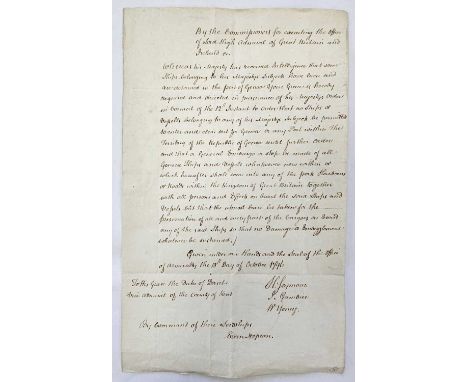 By the Commissioners for executing the Office
of Lord High Admiral of Great Britain and
Ireland &c.
Whereas his Majesty has received Intelligence that some
Ships belonging to his Majestys Subjects have been and
are detained in the Port of Genoa Your Grace is hereby
required and directed in pursuance of his Majestys Order
in Council of the 12th Instant to order that no Ships or
Vessels belonging to any of his Majestys Subjects be permitted
to enter and clear out for Genoa or any Port within the
Territory of the Republic of Genoa until further Orders
and that a General Embargo or stop be made of all
Genoese Ships and Vessels whatsoever now within or
which hereafter shall come into any of the Ports Harbours
or Roads within the Kingdom of Great Britain together
with all persons and Effects on board the said Ships and
Vessels but that the utmost care be taken for the
preservation of all and every part of the Cargoes on Board
any of the said Ships so that no Damage or Embezzlement
whatever be sustained
Given under our Hands and the Seal of the Office
of Admiralty the Day of October 1796
To His Grace the Duke of Dorset
Vice Admiral of the County of Kent
H. Seymour
J. Gambier
W Young
By Command of their Lordships
Evan Nepean